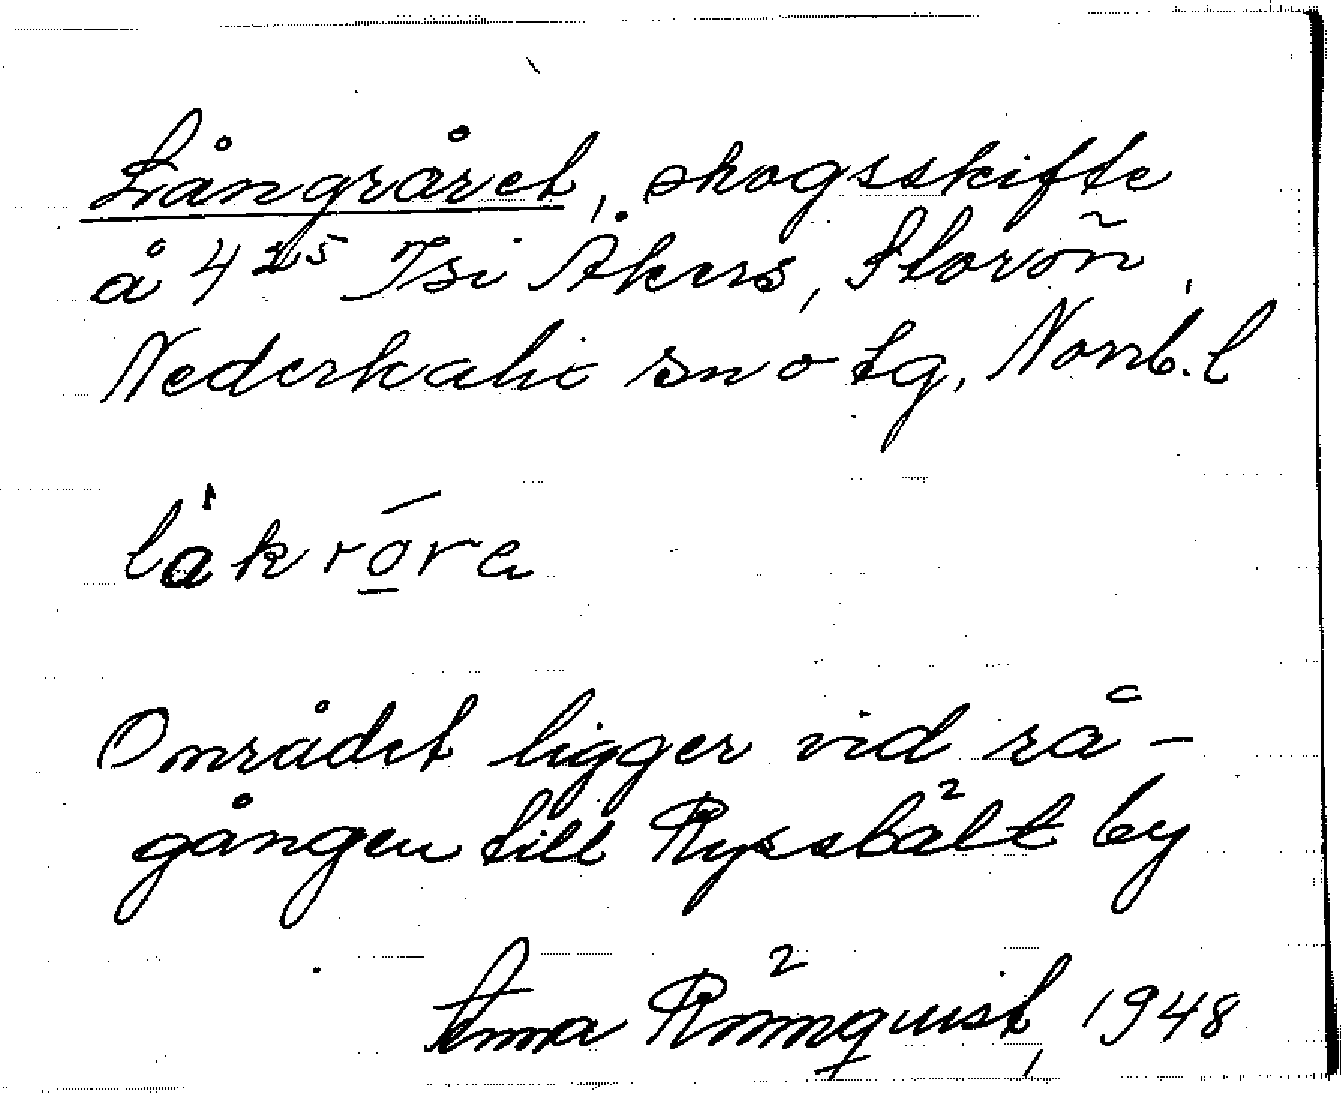 Långråret, skogsskifte
å 4²⁵ Isi Åkers, Storön,
Nederkalix sn o tg, Norrb. l
låkrøra
Området ligger vid rå-
gången till Ryssbält by
Anna Rönnquist, 1948